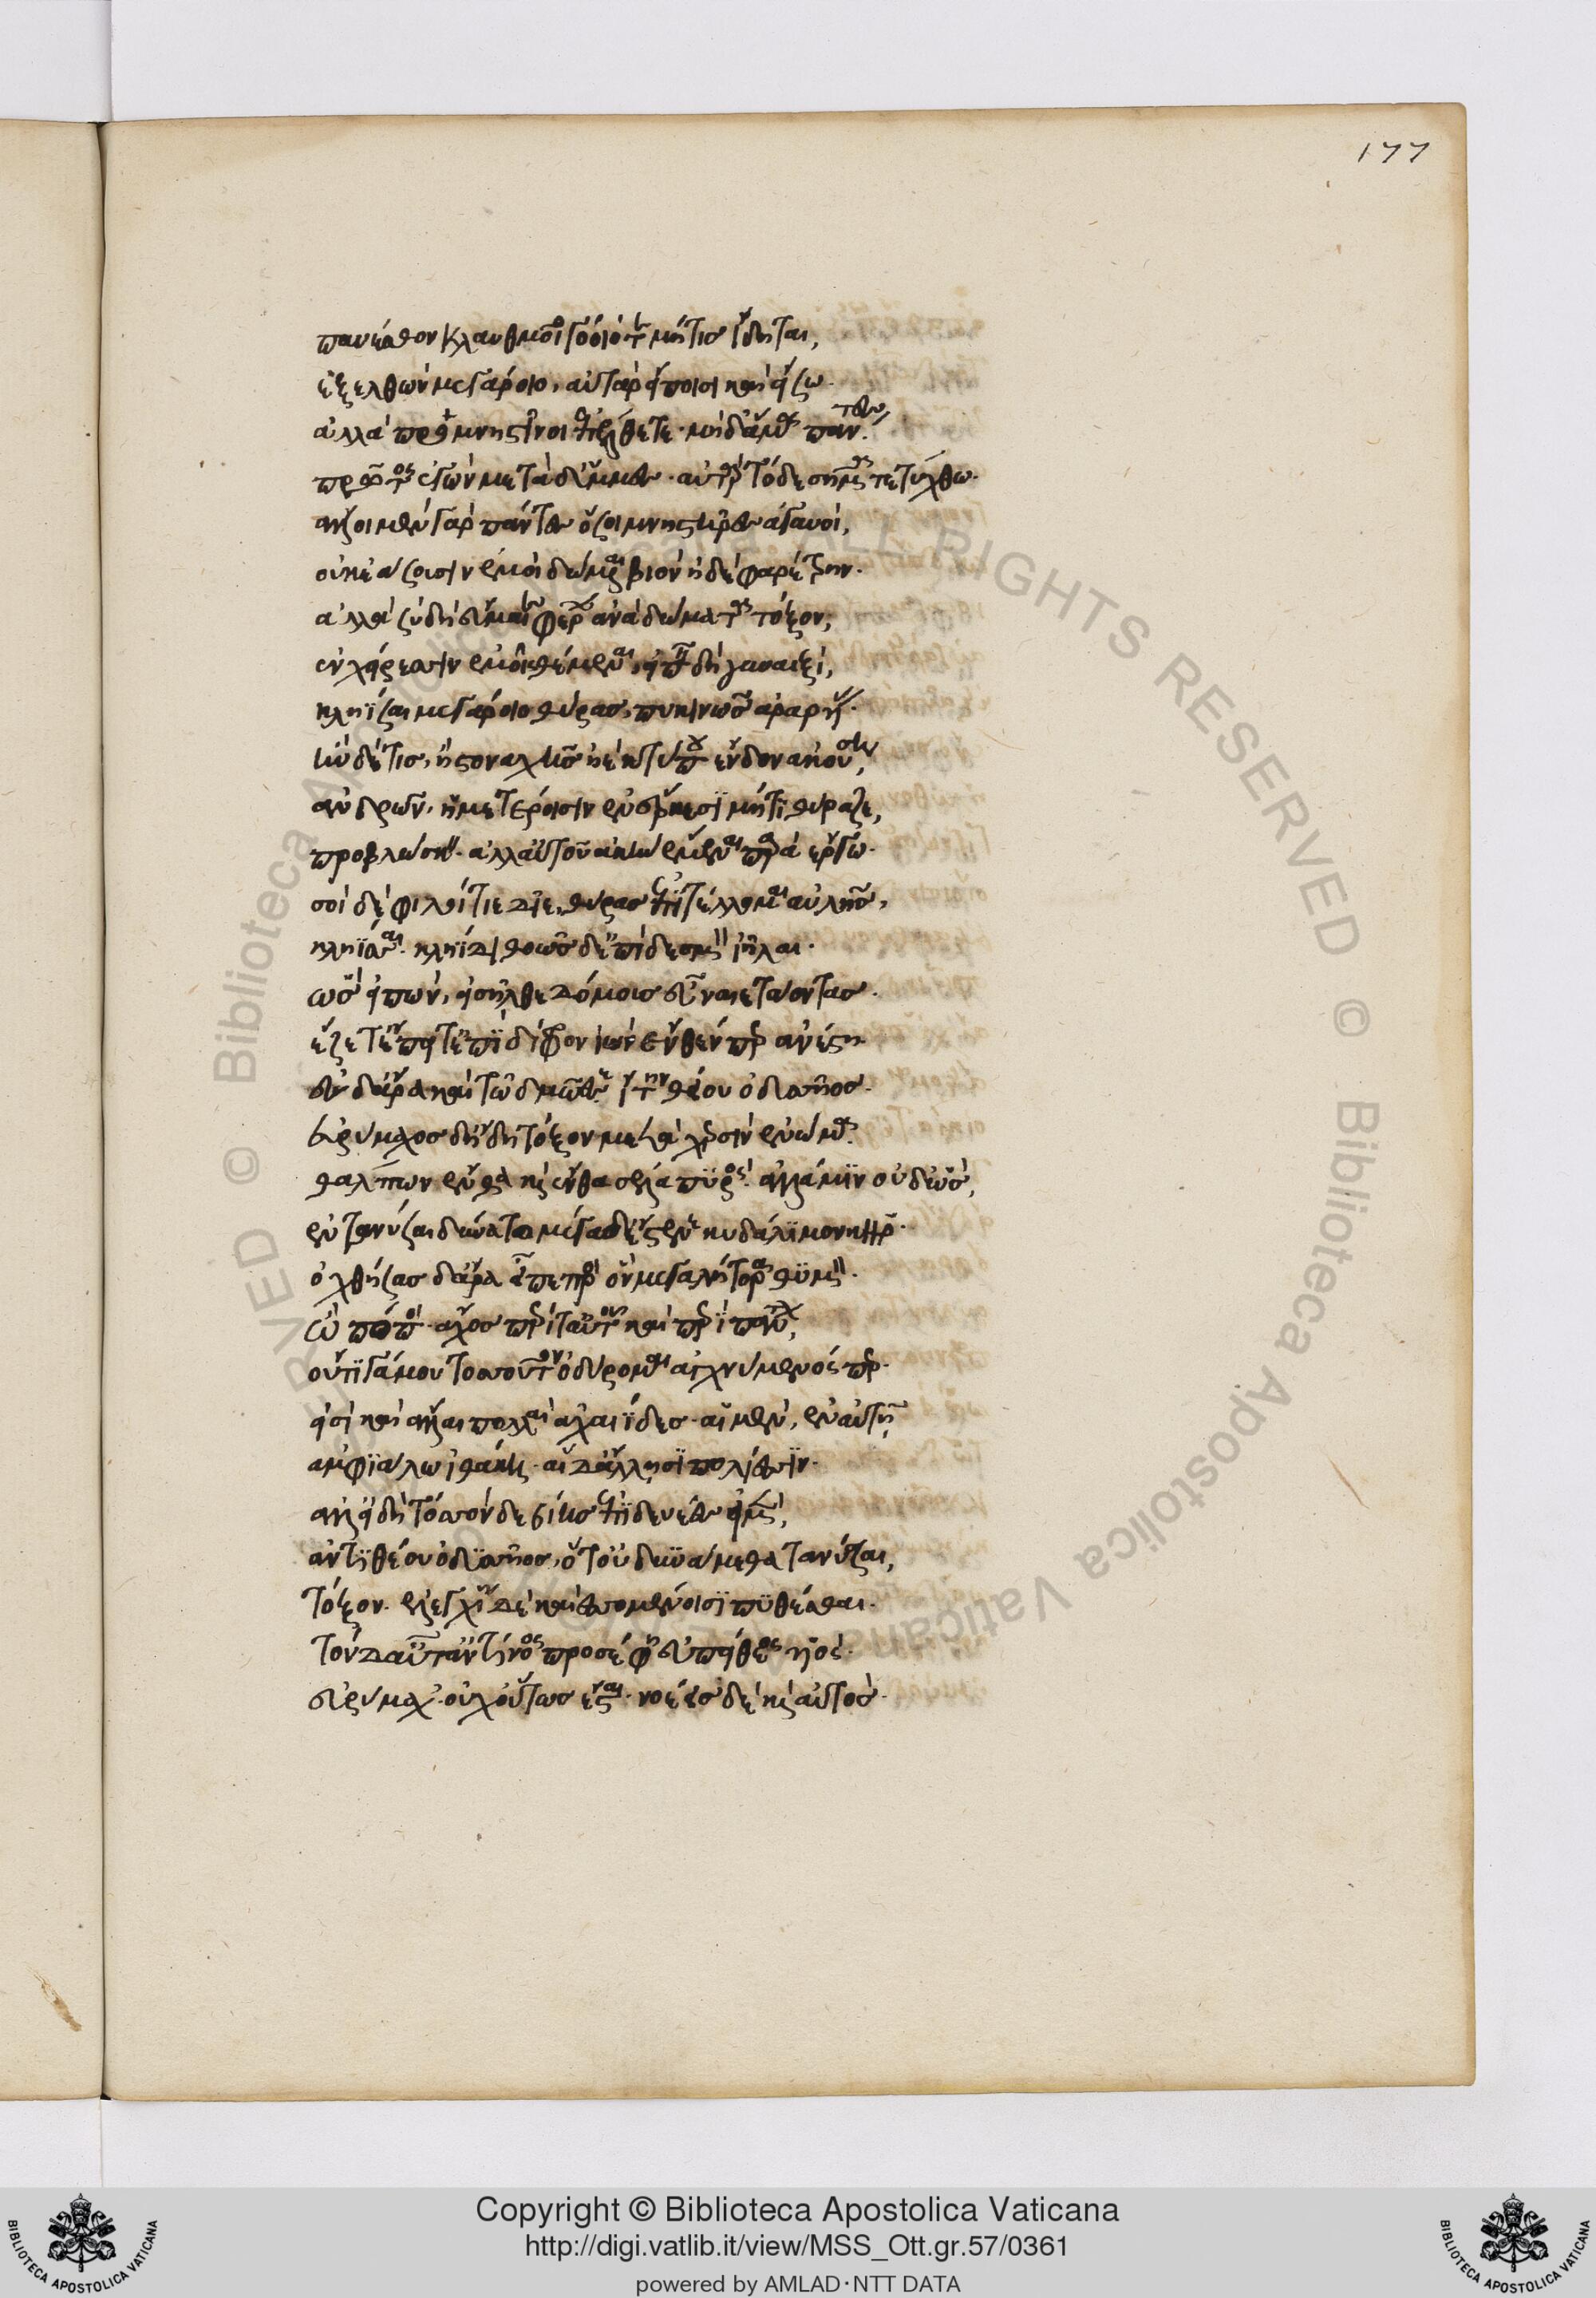 177
παυέσθον κλαυθμοῖο γόοιό τε μή τις ἴδηται,
ἐξελθὼν μεγάροιο, αὐτὰρ εἴπησι καὶ εἴσω.
ἀλλὰ προμνηστῖνοι ἐσέλθετε. μὴ δ' ἅμα πάντες.
πρῶτος ἐγὼν μετὰ δ' ὔμμες. αὐτὰρ τόδε σῆμα τετύχθω.
ἄλλοι μὲν γὰρ πάντες ὅσοι μνηστῆρες ἀγαυοί,
οὐκ ἐάσουσιν ἐμοὶ δώμεναι βιὸν ἠδὲ φαρέτρην.
ἀλλὰ σὺ δῖ' εὔμαιε φέρων ἀνὰ δώματα τόξον,
ἐν χείρεσσιν ἐμοὶ θέμεναι, εἰπεῖν δὲ γυναιξί,
κληῖσαι μεγάροιο θύρας πυκινῶς ἀραρυίας.
ἢν δέ τις ἢ στοναχῆς ἠὲ κτύπου ἔνδον ἀκούσῃ,
ἀνδρῶν ἡμετέροισιν ἐν ἕρκεσι μή τι θύραζε,
προβλώσκειν. ἀλλ' αὐτοῦ ἀκὴν ἔμεναι παρὰ ἔργῳ.
σοὶ δὲ φιλοίτιε δῖε, θύρας ἐπιτέλλομαι αὐλῆς,
κληῖσαι κληῖδι θοῶς δ' ἐπὶ δεσμὸν ἰῆλαι.
ὣς εἰπὼν, εἰσῆλθε δόμους εὖ ναιετάοντας.
ἕζετ' ἔπειτ' ἐπὶ δίφρον ἰὼν ἔνθέν περ ἀνέστη.
ἐς δ' ἄρα καὶ τὼ δμῶε ἴτην θείου ὀδυσσῆος.
εὐρύμαχος δ' ἤδη τόξον μετὰ χερσὶν ἐνώμα.
θάλπων ἔνθα καὶ ἔνθα σέλᾳ πυρός. ἀλλά μιν οὐδ' ὣς,
ἐντανύσαι δύνατο μέγα δ' ἔστενε κυδάλιμον κῆρ.
ὀχθήσας δ' ἄρα εἶπε πρὸς ὃν μεγαλήτορα θυμόν.
ὦ πόποι ἦ μοι ἄχος περί τ' αὐτοῦ καὶ περὶ πάντων,
οὔτι γάμου τοσσοῦτον ὀδύρομαι ἀχνύμενός περ.
εἰσὶ καὶ ἄλλαι πολλαὶ ἀχαιΐδες. αἱ μὲν, ἐν αὐτῇ
ἀμφιάλῳ ἰθάκῃ. αἱ δ' ἄλλῃσι πολίεσσιν.
ἀλλ' εἰ δὴ τοσσόνδε βίης ἐπιδευέες εἰμὲν,
ἀντιθέου ὀδυσσῆος, ὅτ' οὐ δυνάμεσθα τανύσσαι,
τόξον. ἐλεγχείη δὲ καὶ ἐσσομένοισι πυθέσθαι.
τὸν δ' αὖτ' ἀντίνοος προσέφη εὐπείθεος υἱός.
εὐρύμαχ' οὐχ οὕτως ἔσται. νοέεις δὲ καὶ αὐτός.
Copyright © Biblioteca Apostolica Vaticana
http://digi.vatlib.it/view/MSS_Ott.gr.57/0361
powered by AMLAD·NTT DATA